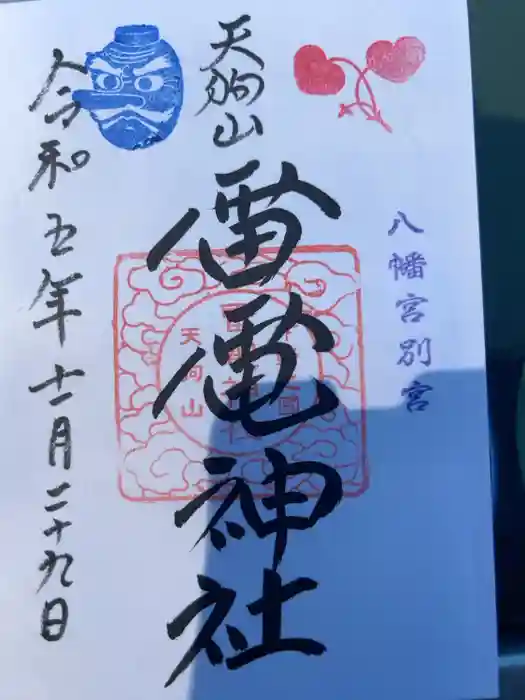 八幡宮別宮
天狗山
雷電神社
天狗山
令和五年十一月二十九日